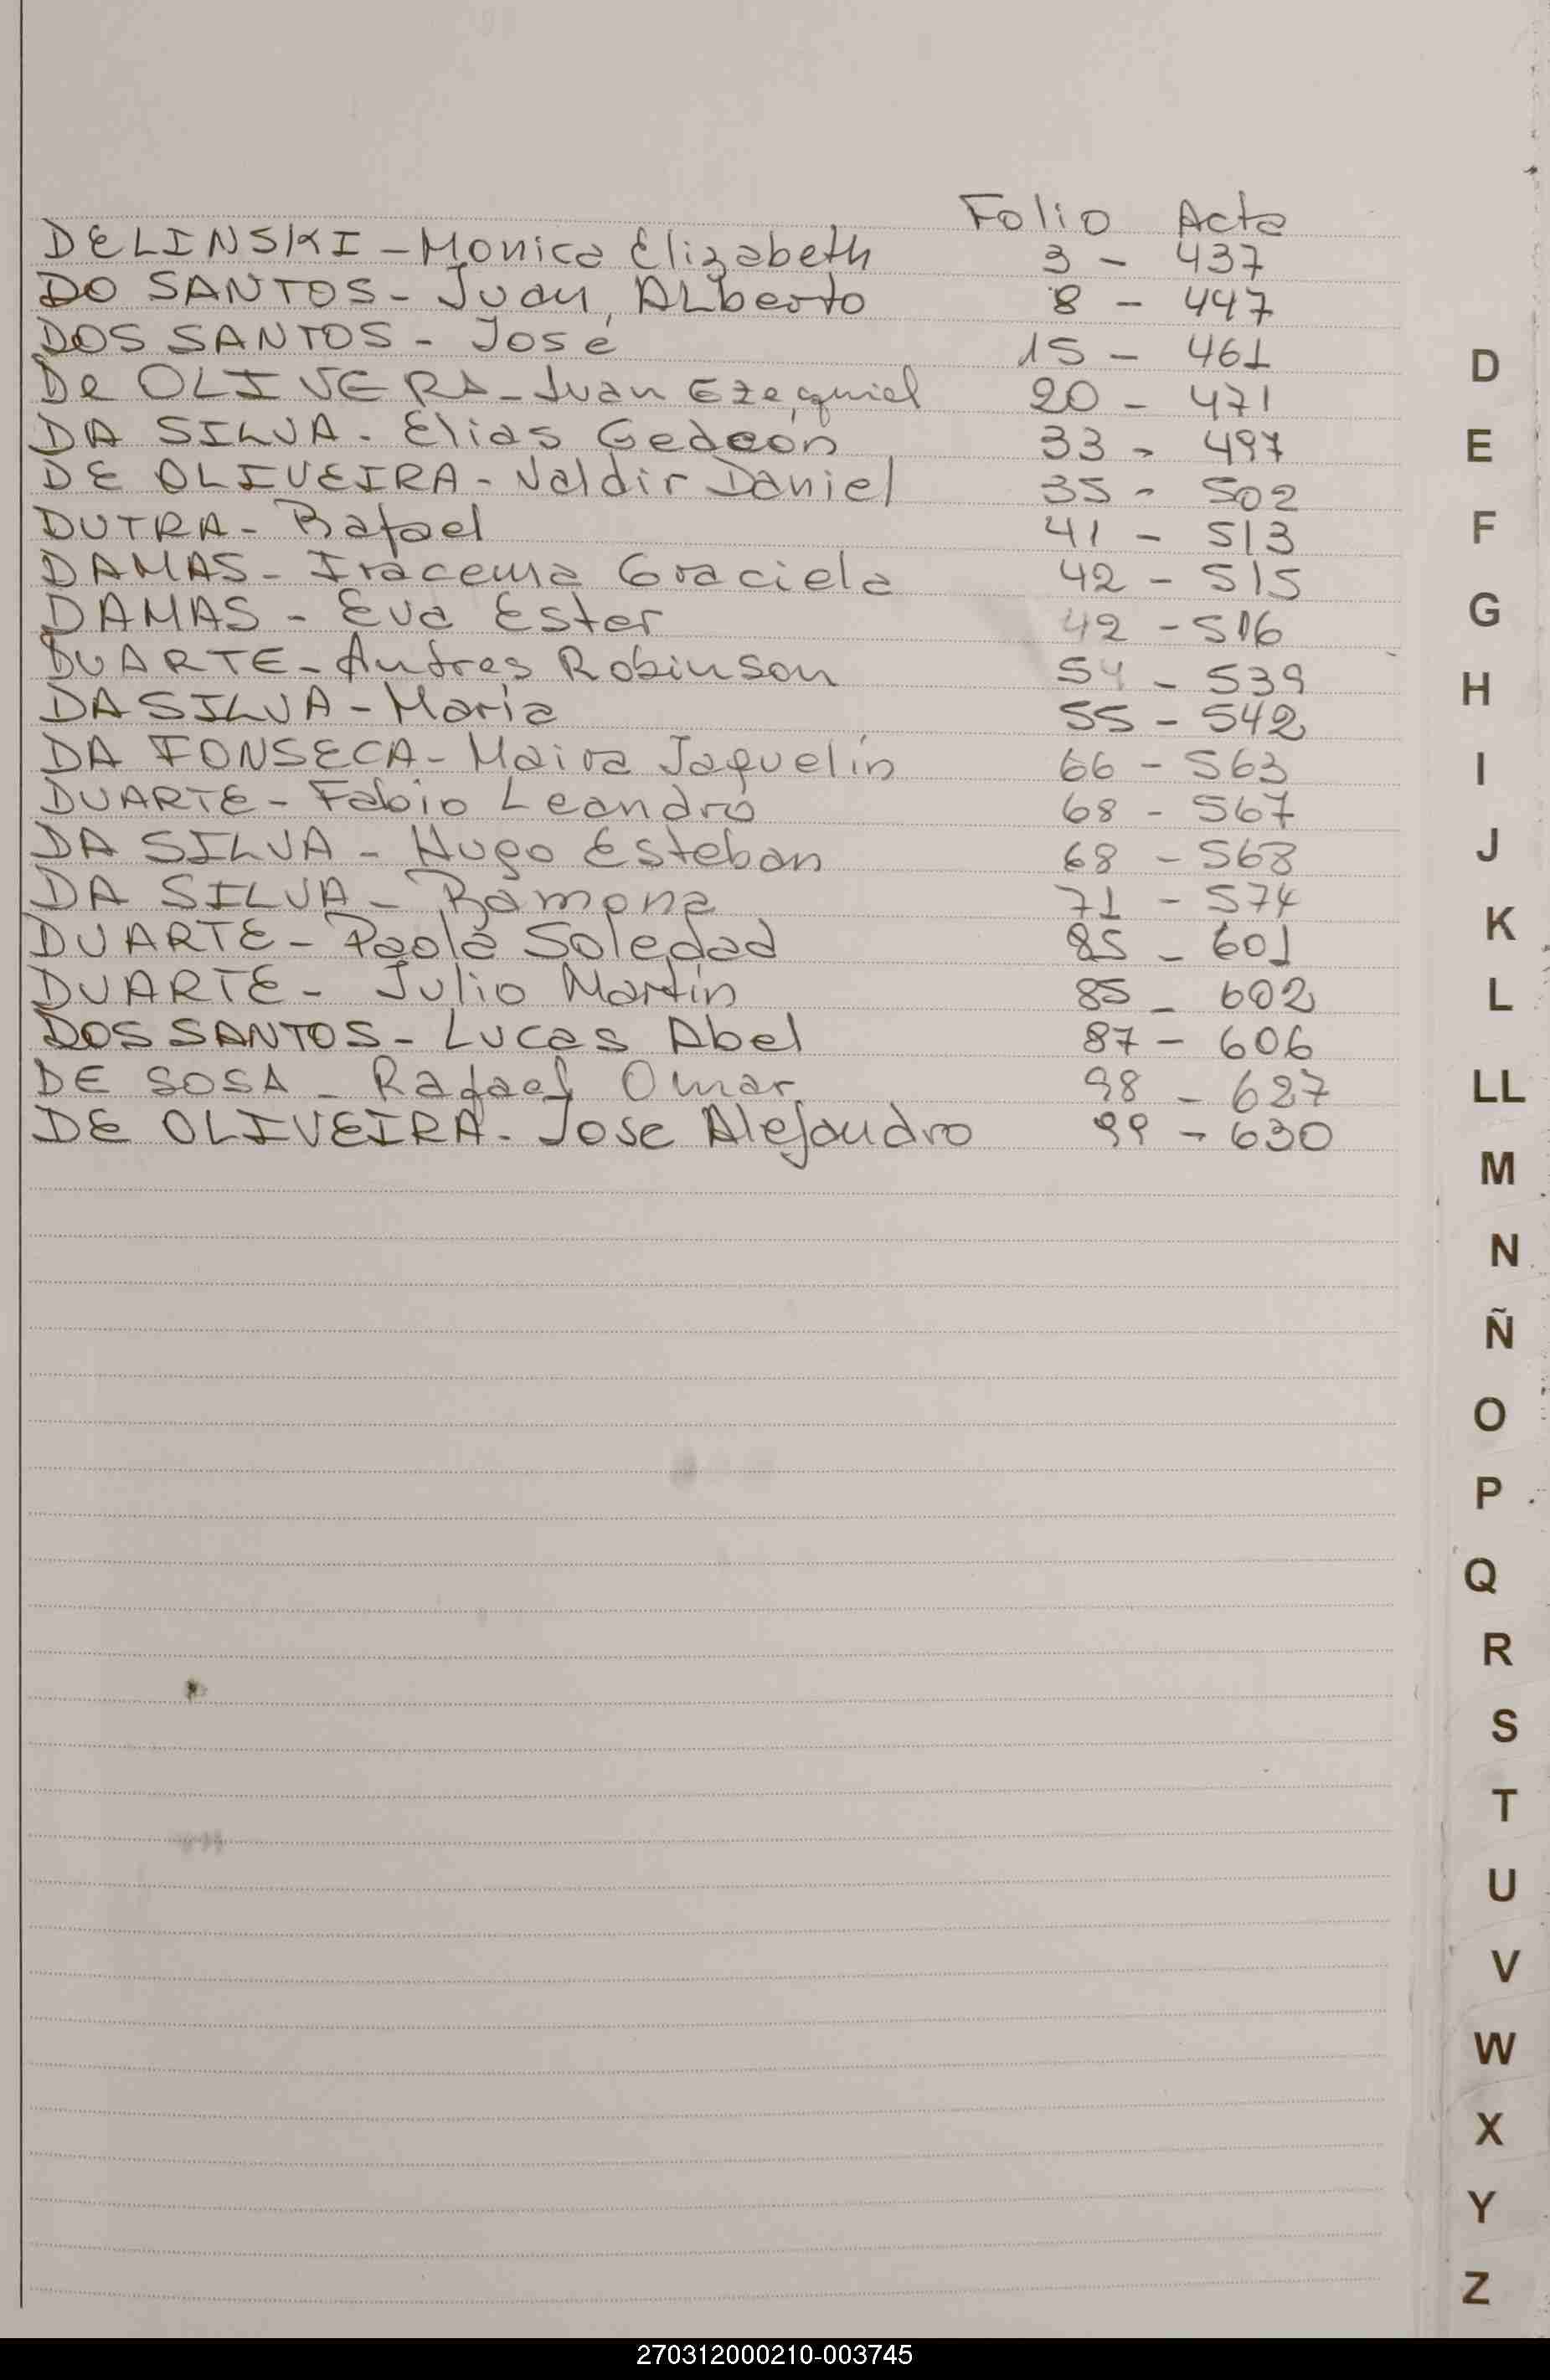 Folio Acta
DELINSKI - Monica Elizabeth 3 - 437
DO SANTOS - Juan, ALberto 8 - 447
DOS SANTOS - José 15 - 461
De OLIVERA - Juan Ezequiel 20 - 471
DA SILVA - Elias Gedeón 33 - 497
DE OLIVEIRA - Valdir Daniel 35 - 502
DUTRA - Rafael 41 - 513
DAMAS - Iracema Graciela 42 - 515
DAMAS - Eva Ester 42 - 516
DUARTE - Andres Robinson 54 - 539
DA SILVA - María 55 - 542
DA FONSECA - Maira Jaquelín 66 - 563
DUARTE - Fabio Leandro 68 - 567
DA SILVA - Hugo Esteban 68 - 568
DA SILVA - Ramona 71 - 574
DUARTE - Paola Soledad 85 - 601
DUARTE - Julio Martín 85 - 602
DOS SANTOS - Lucas Abel 87 - 606
DE SOSA - Rafael Omar 98 - 627
DE OLIVEIRA - Jose Alejandro 99 - 630
D
E
F
G
H
I
J
K
L
LL
M
N
Ñ
O
P
Q
R
S
T
U
V
W
X
Y
Z
270312000210-003745